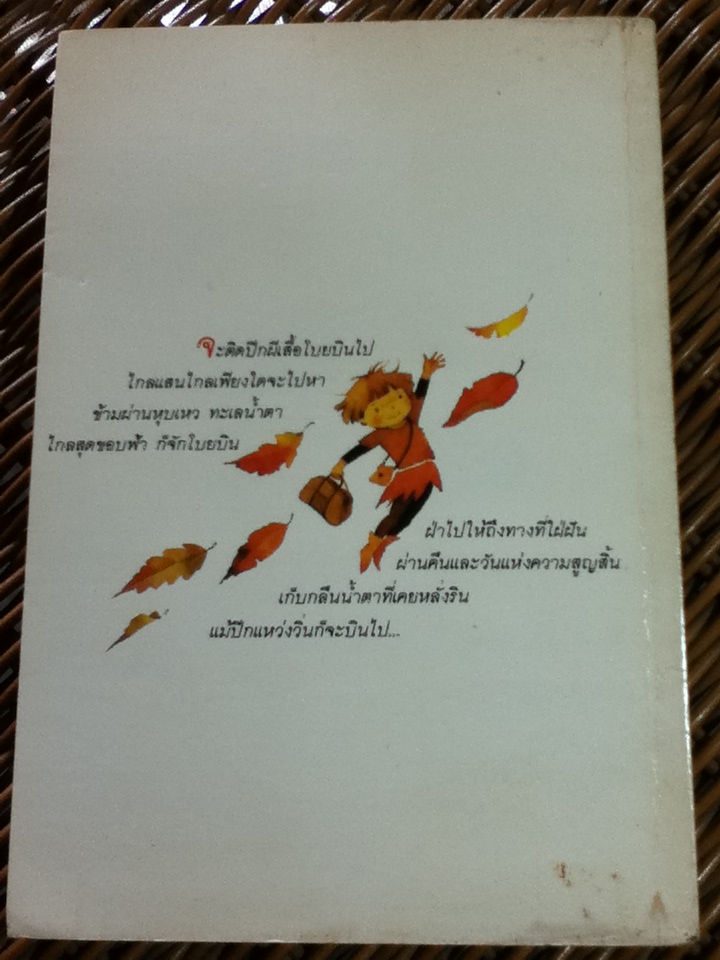 จะติดปีกผีเสื้อโบยบินไป
ไกลแสนไกลเพียงใดจะไปหา
ข้ามผ่านหุบเหว ทะเลน้ำตา
ไกลสุดขอบฟ้า ก็จักโบยบิน
ฝ่าไปให้ถึงทางที่ใฝ่ฝัน
ผ่านคืนและวันแห่งความสูญสิ้น
เก็บกลืนน้ำตาที่เคยหลั่งริน
แม้ปีกแหว่งวิ่นก็จะบินไป...